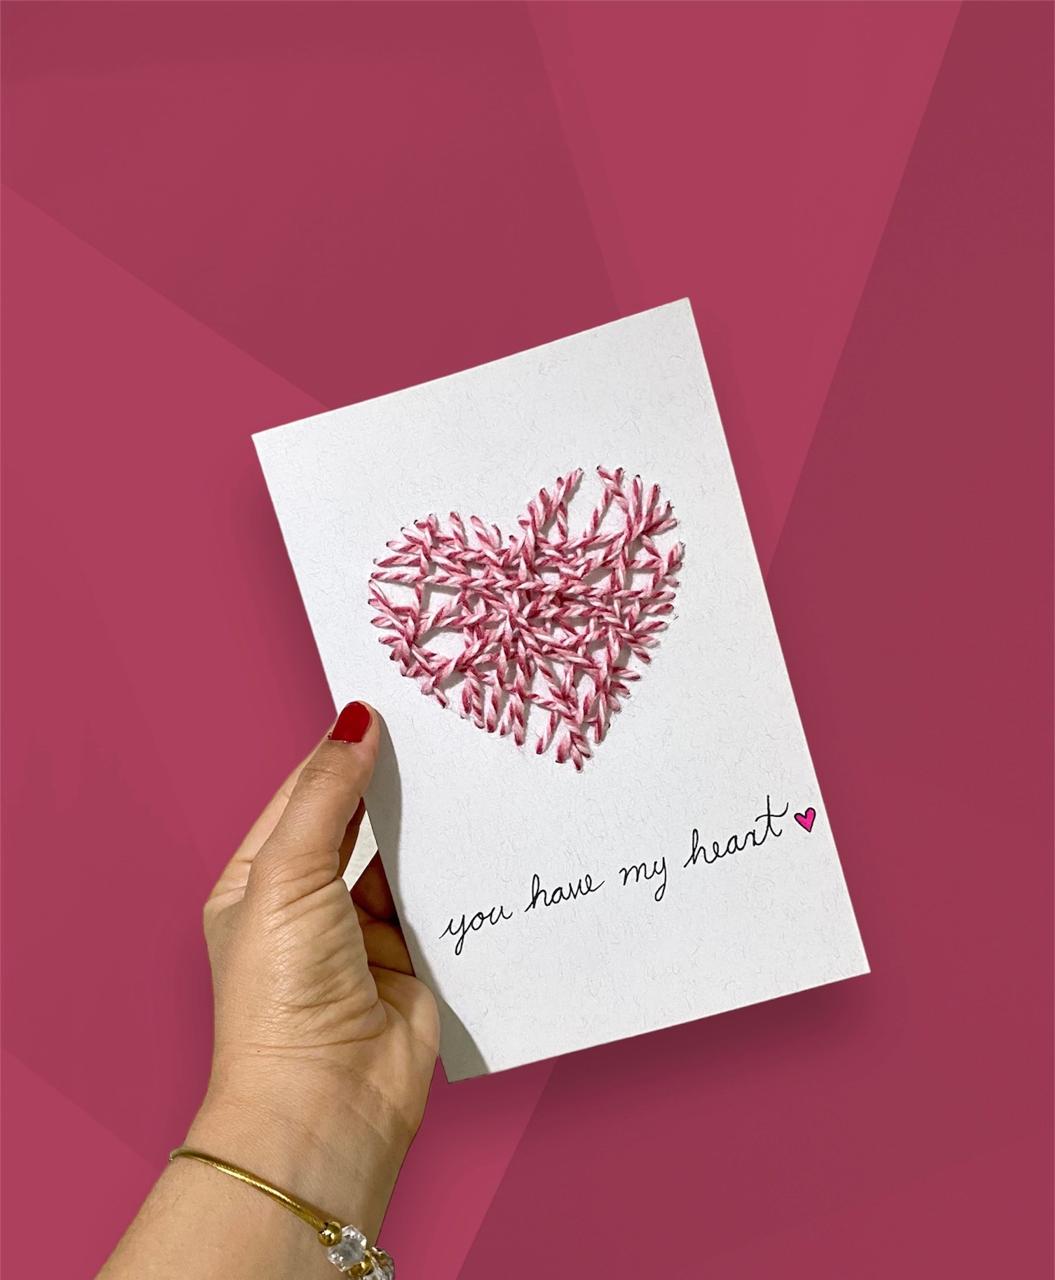 you have my heart